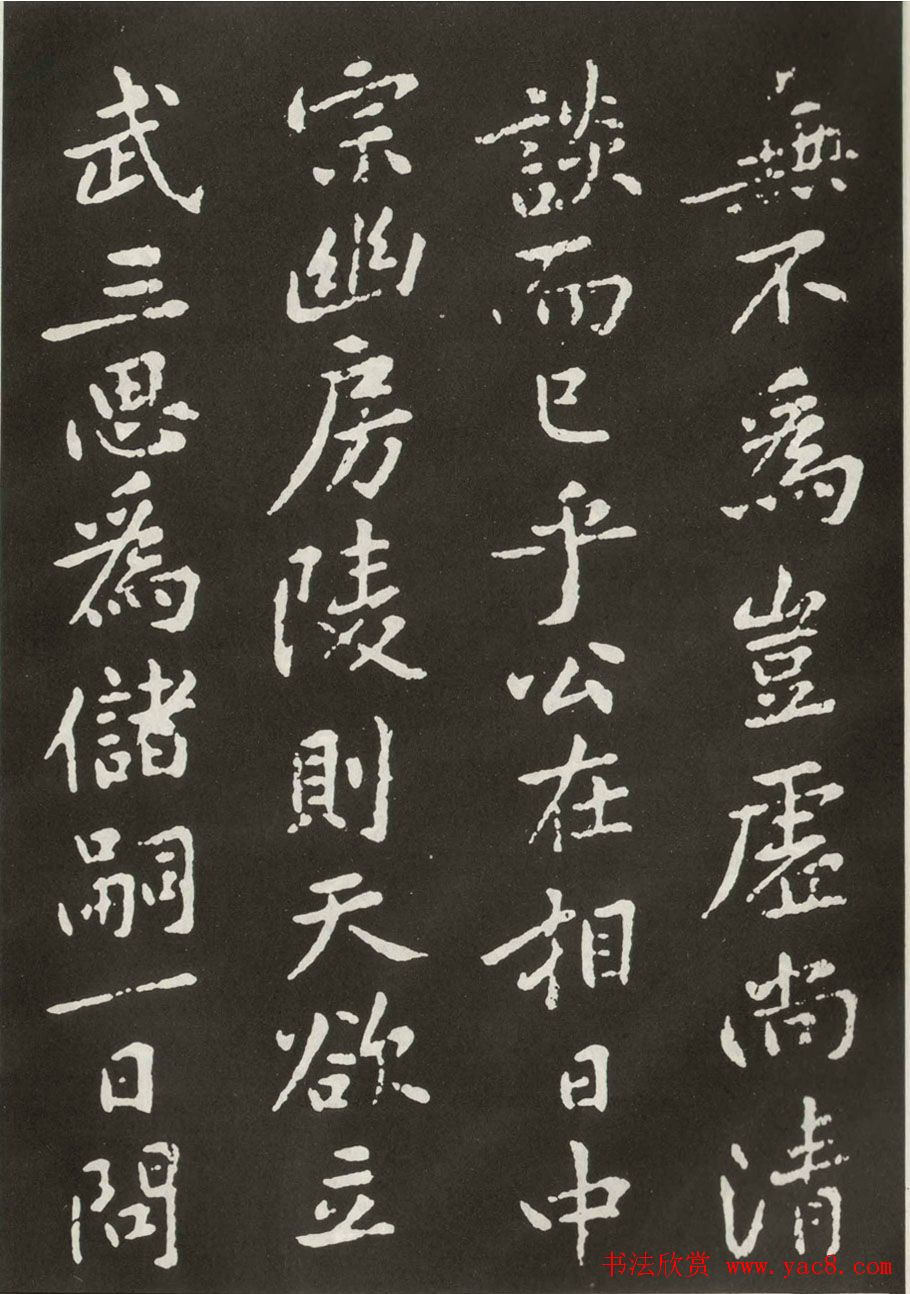 無不為豈虛尚清
談而已乎公在相日中
宗幽房陵則天欲立
武三思為儲嗣一日問
书法欣赏 www.yac8.com